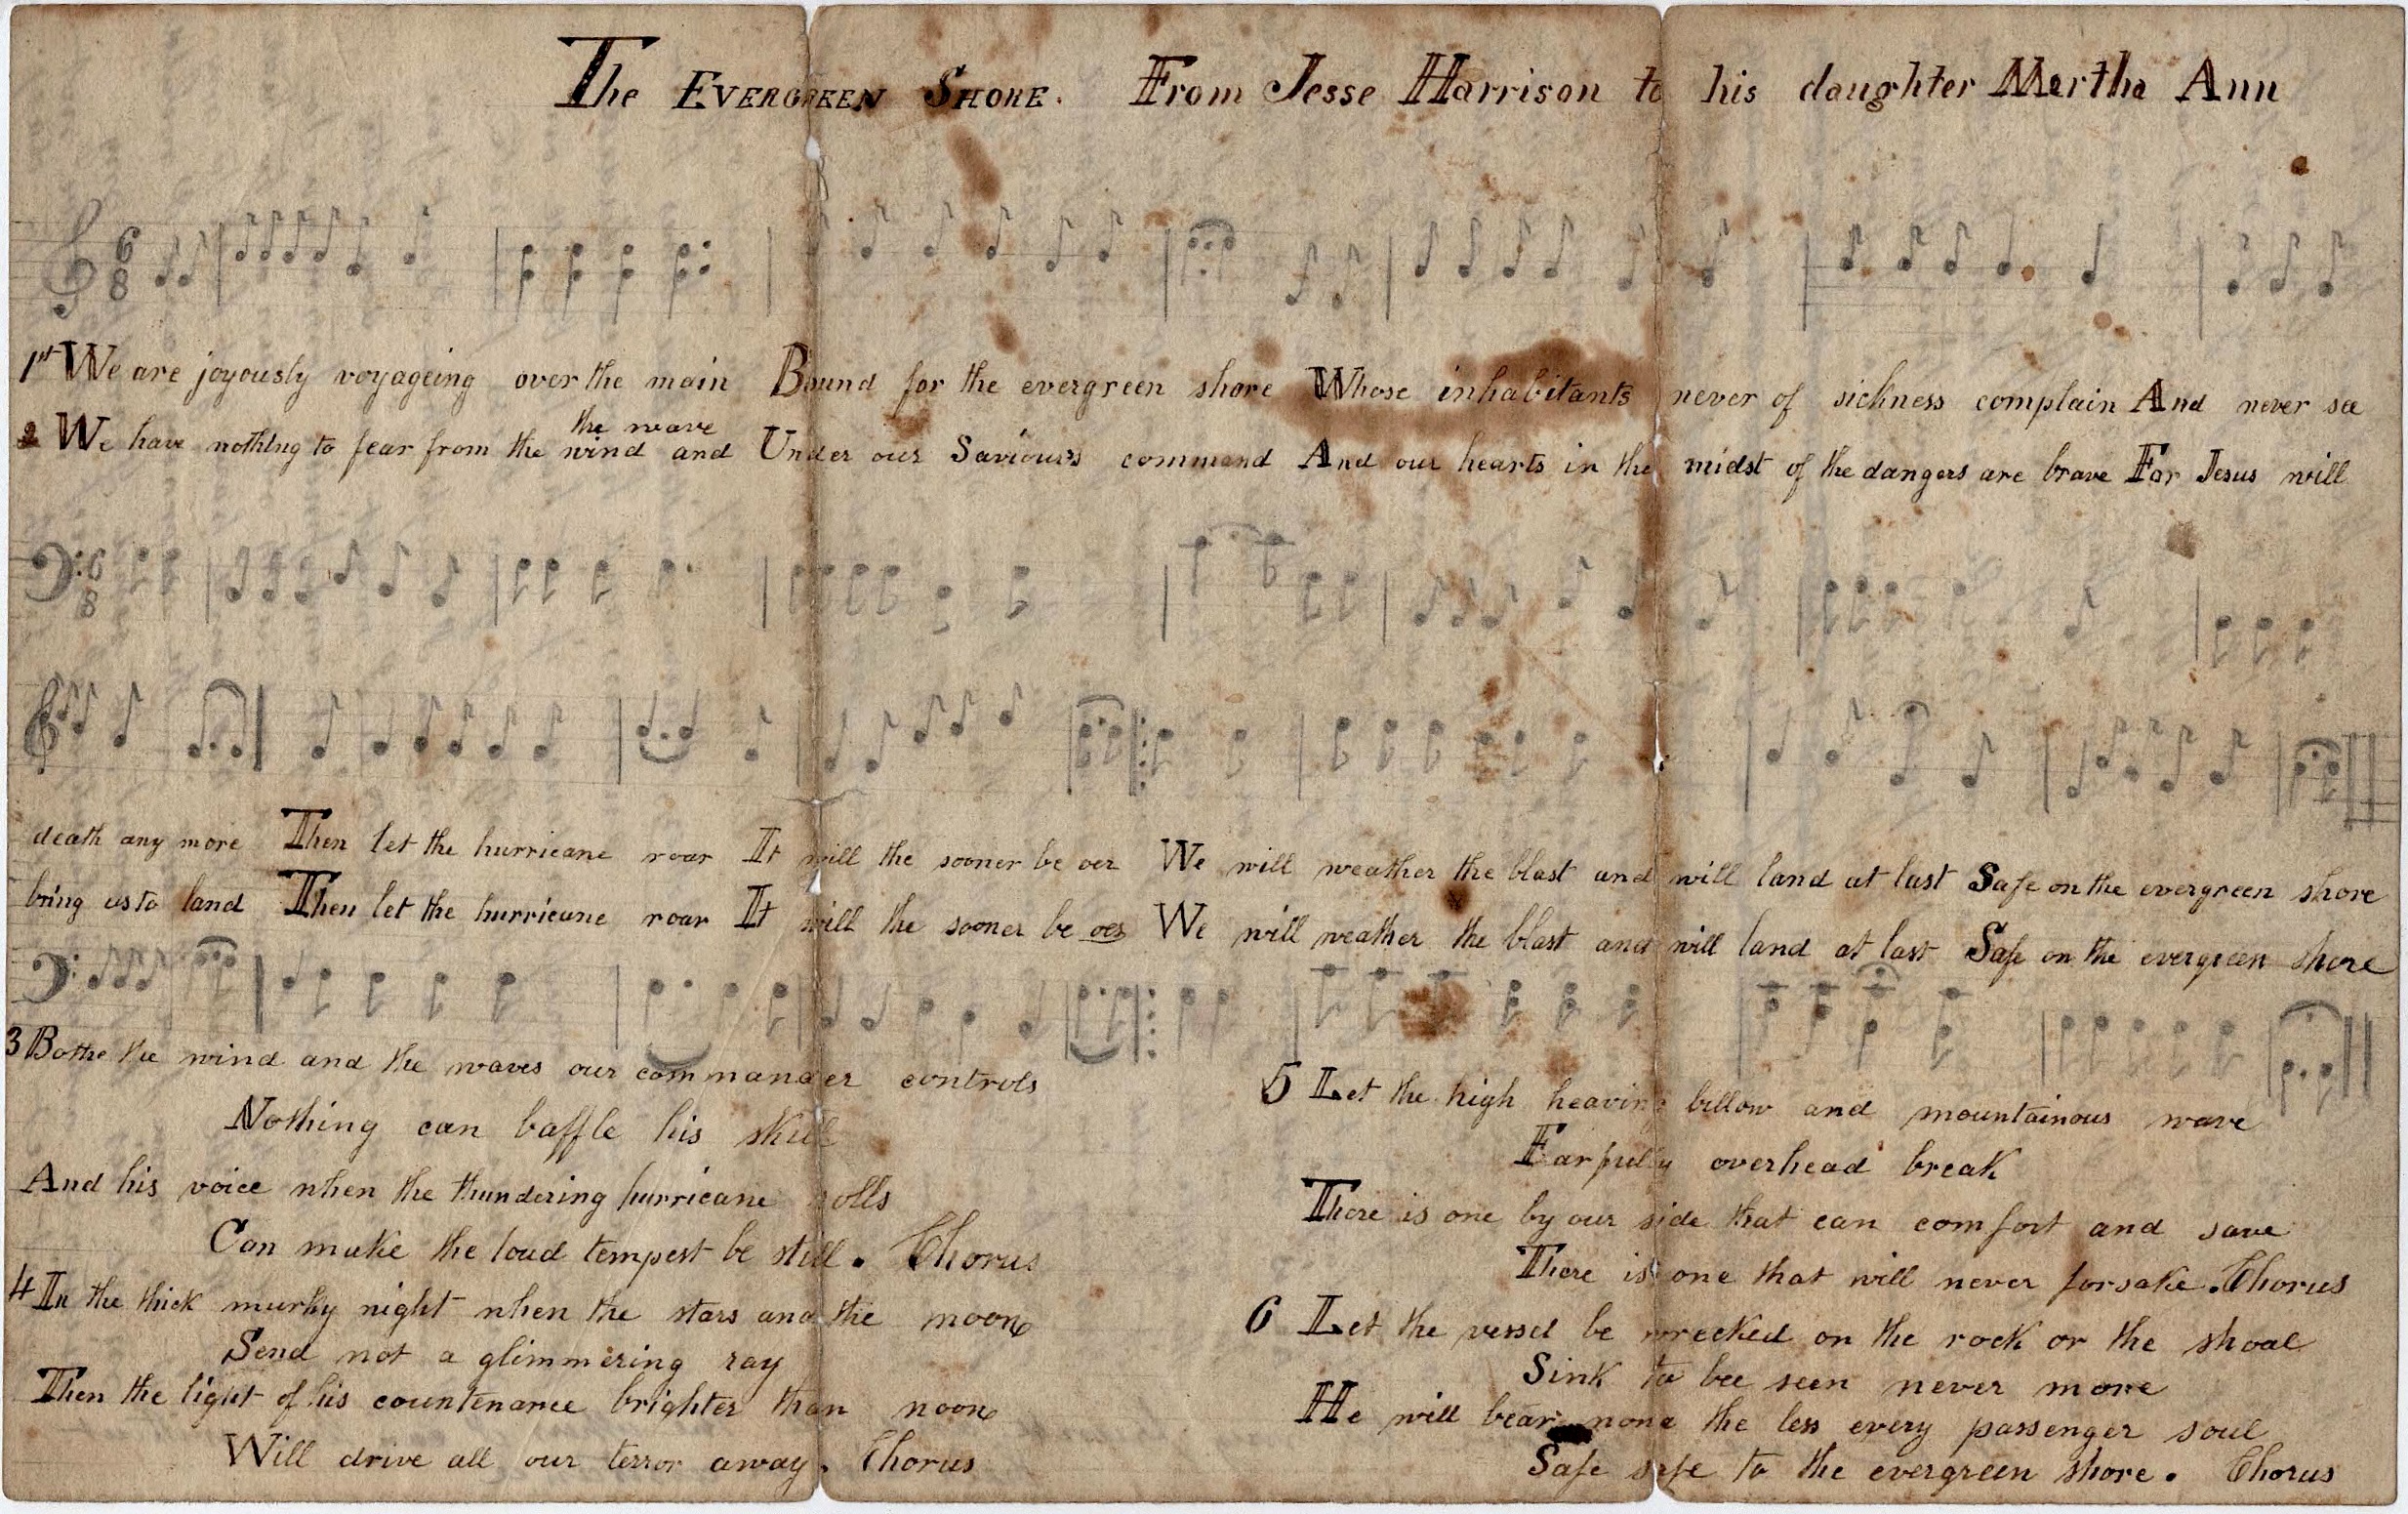 The Evergreen Shore. From Jesse Harrison to his daughter Martha Ann
6
8
1st We are joyously voyageing over the main Bound for the evergreen shore Whose inhabitants never of sickness complain And never see
the wave
2 We have nothing to fear from the wind and Under our Saviours command And our hearts in the midst of the dangers are brave For Jesus will
6
8
death any more Then let the hurricane roar It will the sooner be oer We will weather the blast and will land at last Safe on the evergreen shore
bring us to land Then let the hurricane roar It will the sooner be oer We will weather the blast and will land at last Safe on the evergreen shore
3 Bothe the wind and the waves our commander controls
Nothing can baffle his skill
And his voice when the thundering hurricane rolls
Can make the loud tempest be still. Chorus
4 In the thick murky night when the stars and the moon
Send not a glimmering ray
Then the light of his countenance brighter than noon
Will drive all our terror away. Chorus
5 Let the high heaving billow and mountainous wave
Farfully overhead break
There is one by our side that can comfort and save
There is one that will never forsake. Chorus
6 Let the vessel be wrecked on the rock or the shoal
Sink to bee seen never more
He will bear none the less every passenger soul
Safe safe to the evergreen shore. Chorus